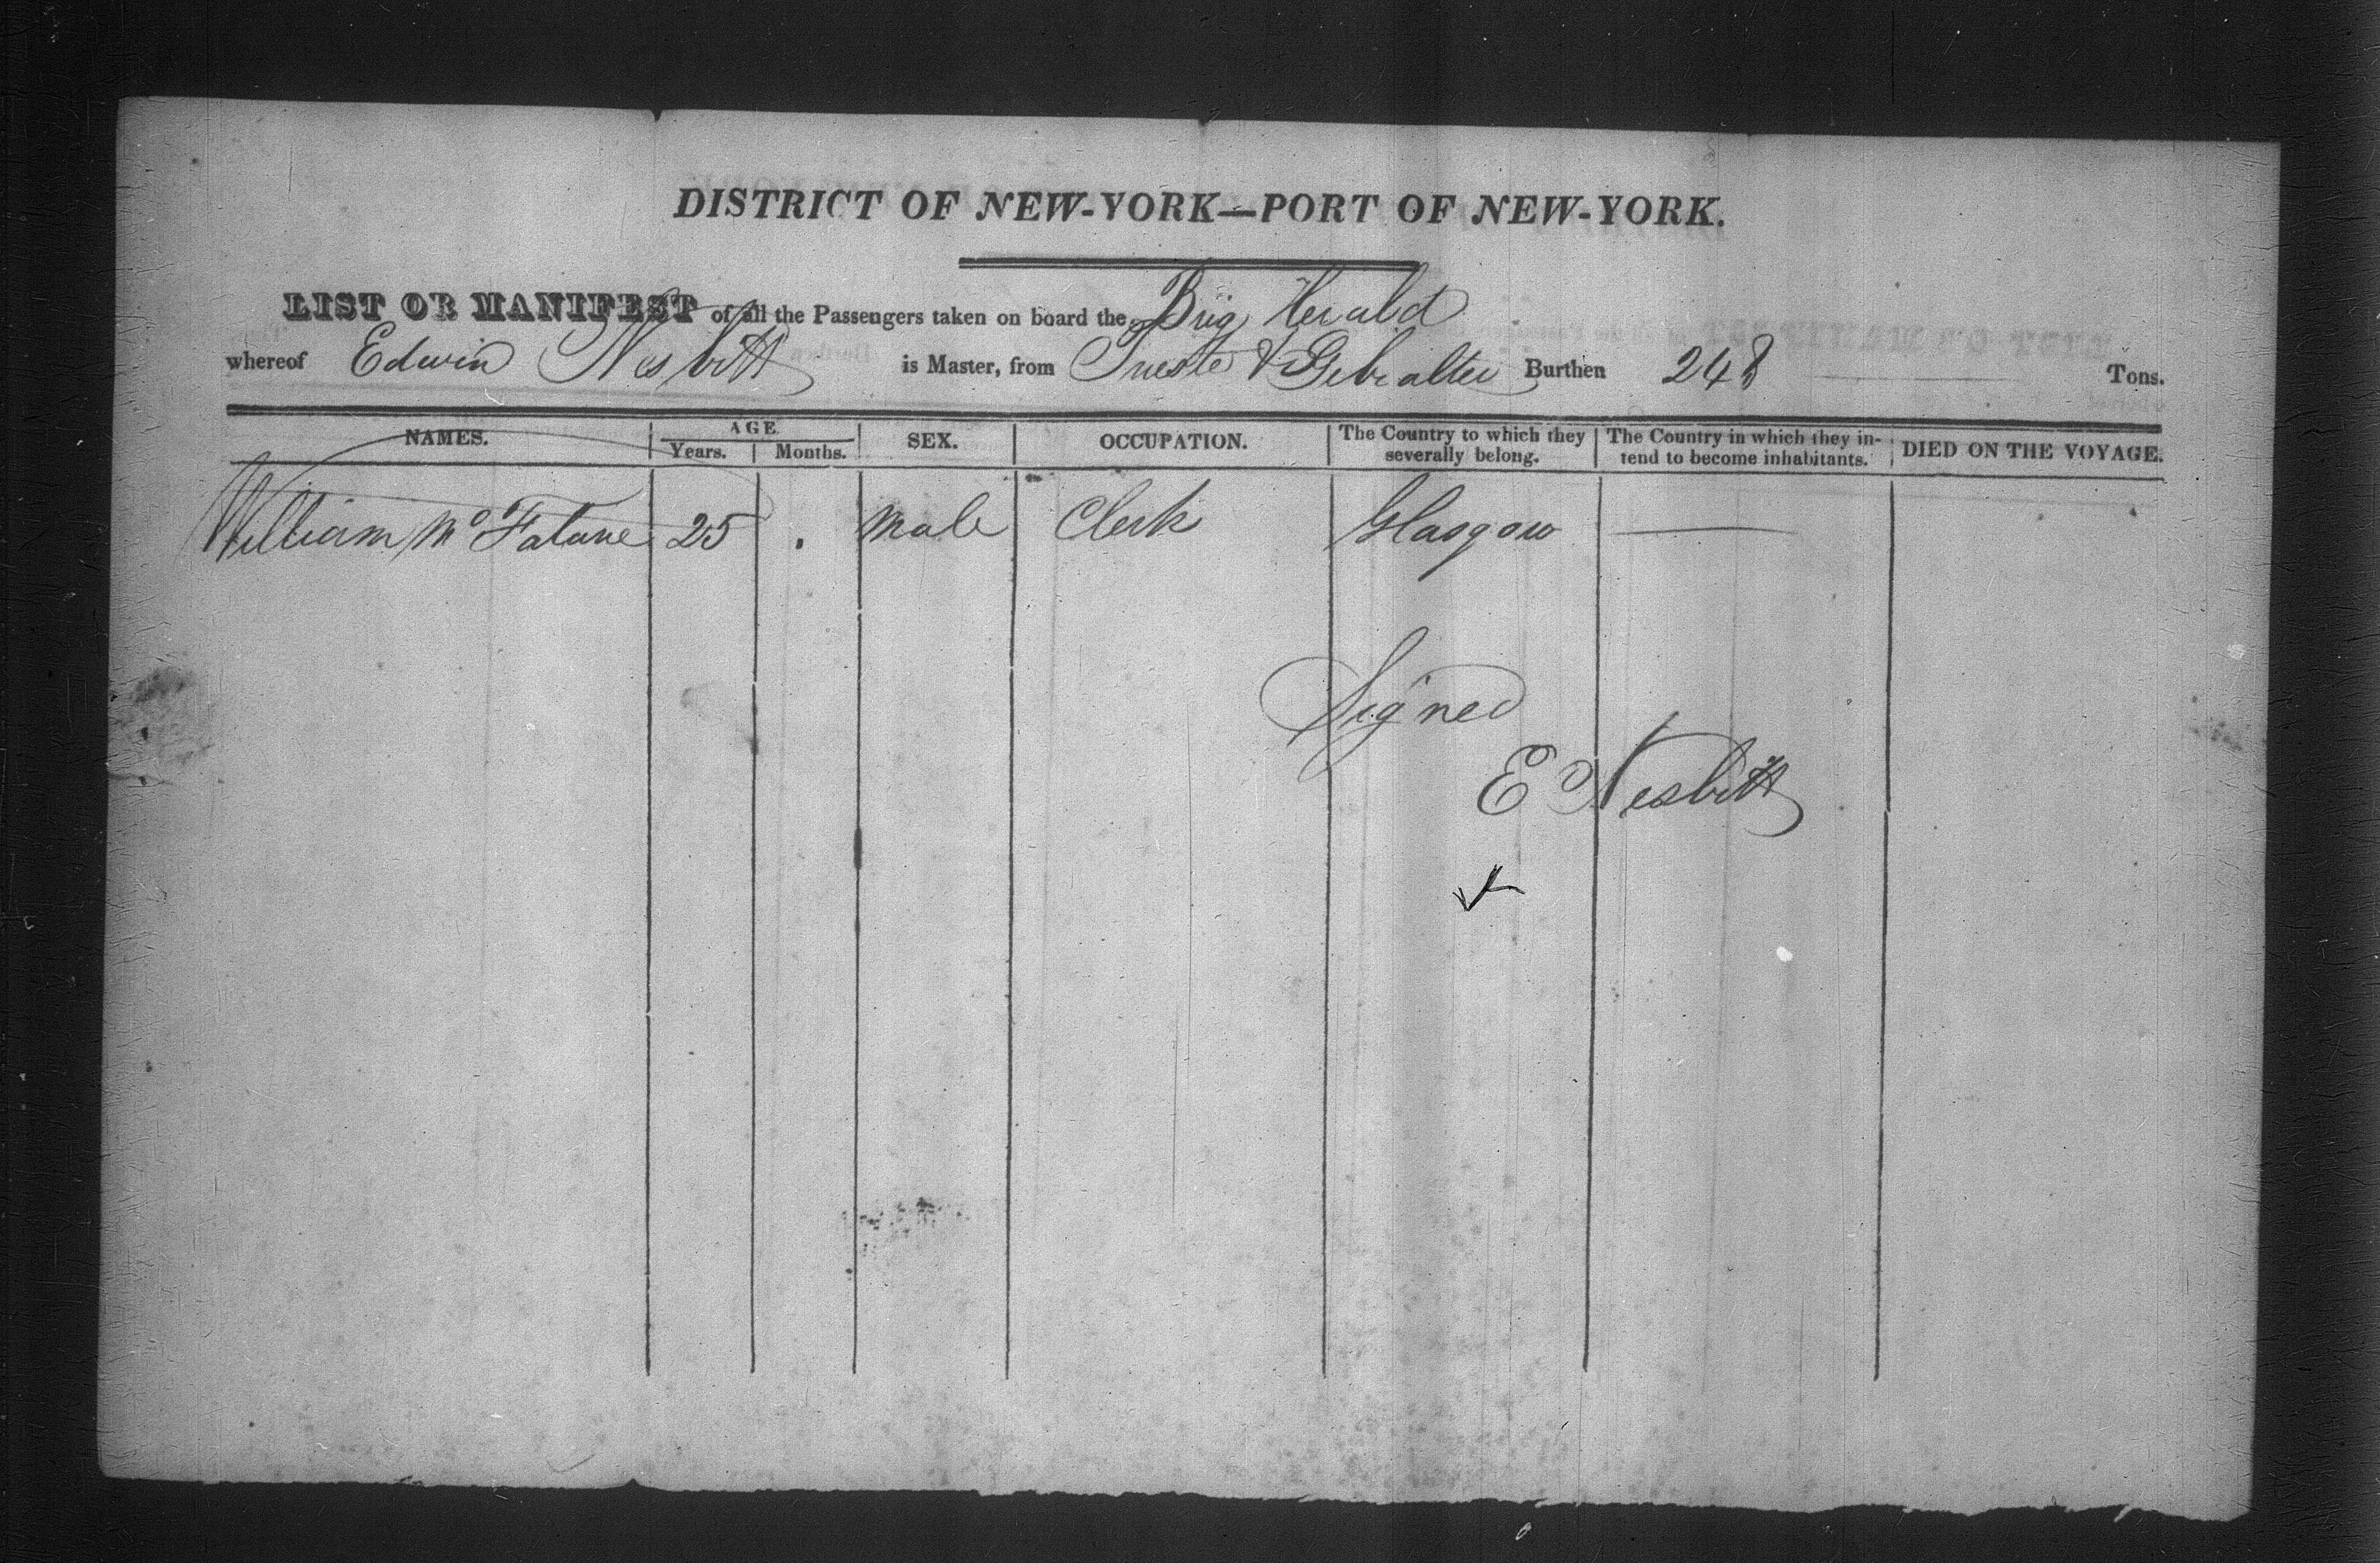 DISTRICT OF NEW-YORK—PORT OF NEW-YORK.
LIST OR MANIFEST of all the Passengers taken on board the Brig Herald
whereof Edwin Nesbitt is Master, from Trieste & Gibralter Burthen 248 Tons.
NAMES. AGE Years. Months. SEX. OCCUPATION. The Country to which they severally belong. The Country in which they intend to become inhabitants. DIED ON THE VOYAGE.
William Mc 25 . Male Clerk Glasgow —
Signed
E Nesbitt